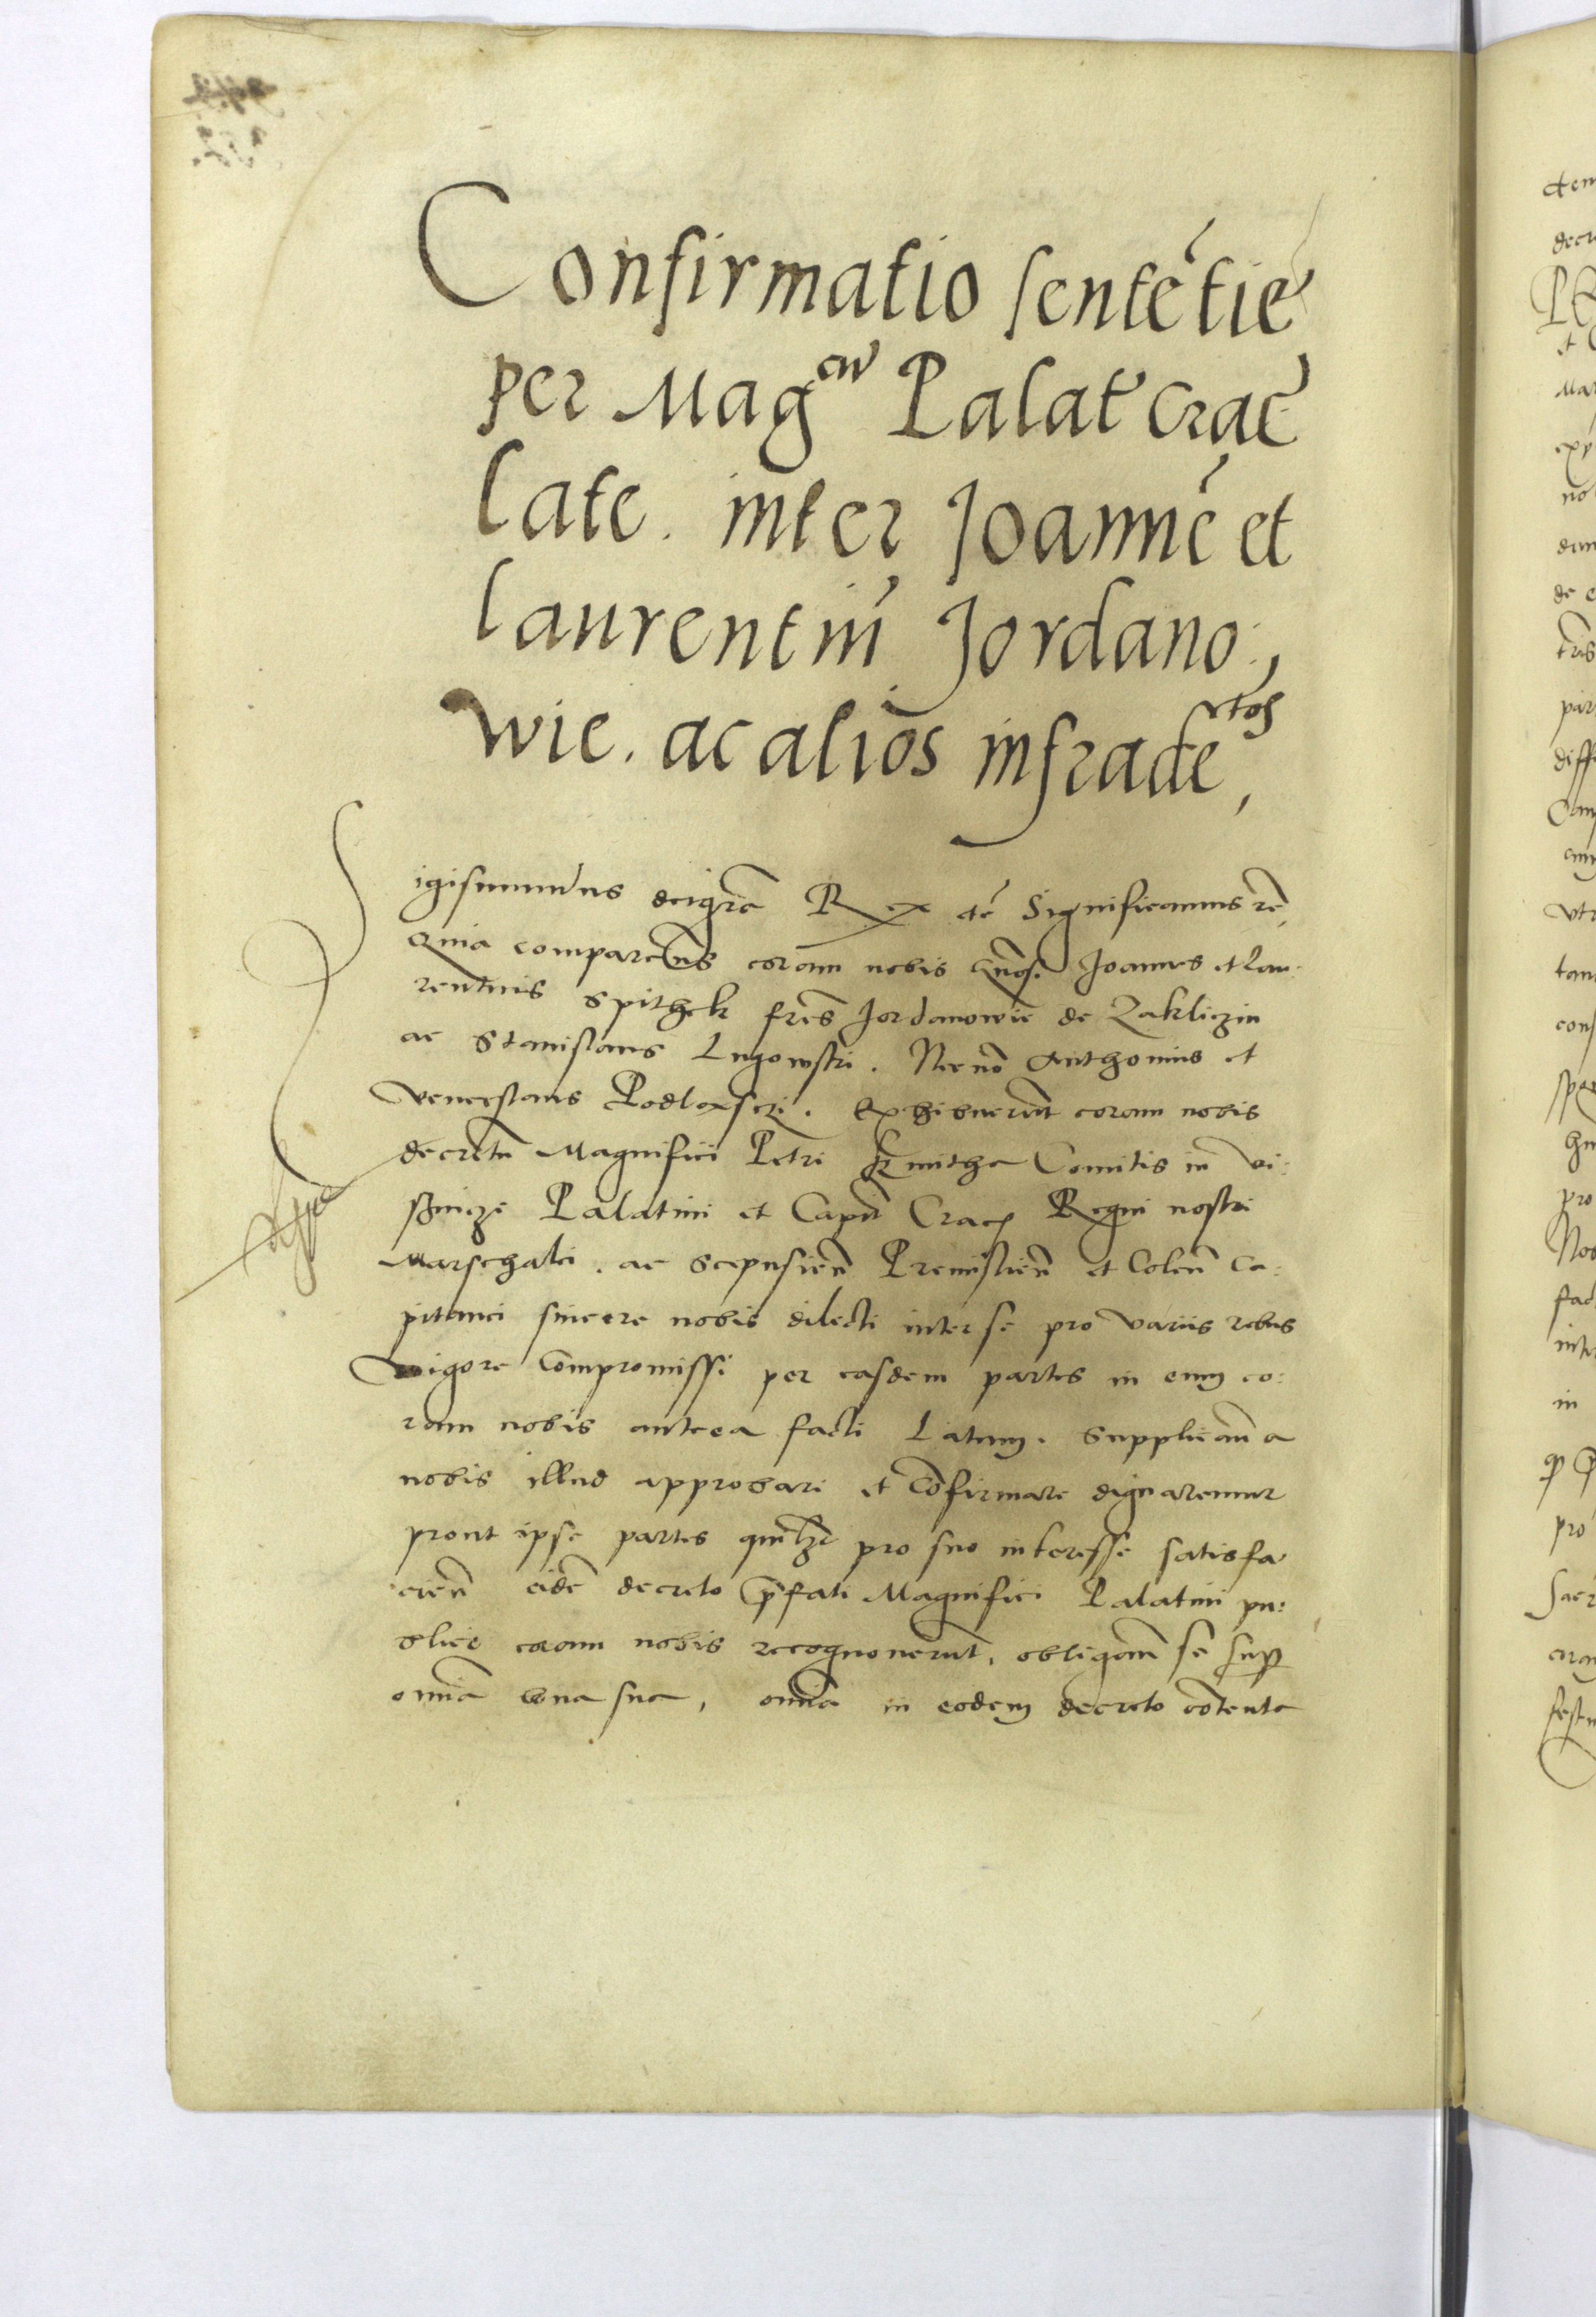 Confirmatio sentẽtie
per Mag^cu Palat̃ Crac̃
late. inter Joannẽ et
laurentiũ Jordano:,
wie. ac alios infrade^ctos,
Sigismundus dei gr̃a Rex etc̃ Significamus tc̃,
Quia comparen̄s coram nobis gñosi Joannes et Lau:
rentius Spithek fr̃es Jordanowie de Zakliczin
ac Stanislaus Lugowski. Nec nõ Anthonius et
Venceslaus Podlodsczi. Exhibuerũt coram nobis
decretũ Magnifici Petri Kmitha Comitis in Vi:
sznicze Palatini et Capit̃ Crac̃ Regni nostri
Marschalci. ac Scepusień Premislień et Coleń Ca:
pitanei sincere nobis dilecti inter se pro variis rebus
Vigore Compromissi per easdem partes in eum co:
ram nobis antea facti Latum. Supplicañ a
nobis illud approbari et Cõfirmare dignaremur
prout ipse partes pro suo interesse satisfa
cień eidẽ decreto p̃fati Magnifici Palatini pu:
blice coram nobis recognouerũt, obligañ se sup̱
omĩa bona sua, omĩa in eodem decreto cõtenta